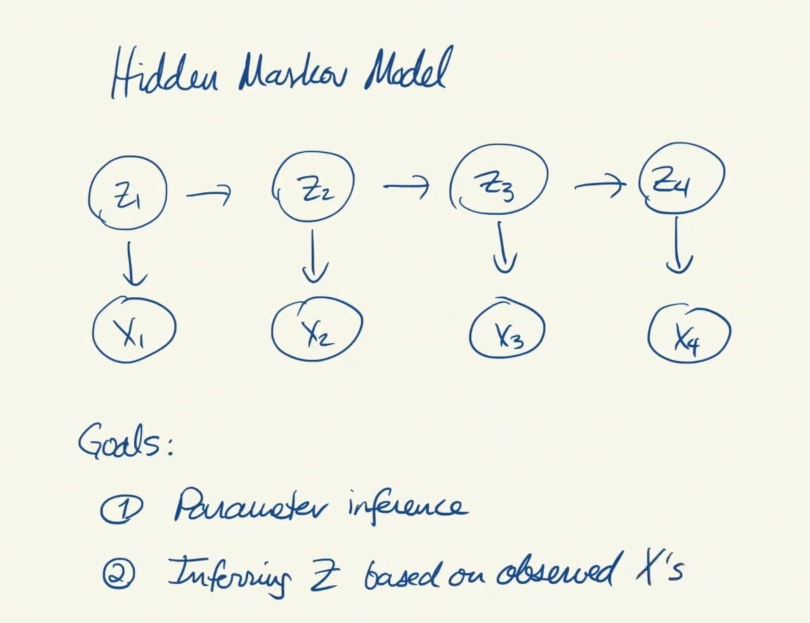 Hidden Markov Model
Z1 → Z2 → Z3 → Z4
X1 X2 X3 X4
Goals:
① Parameter inference
② Inferring Z based on observed X's